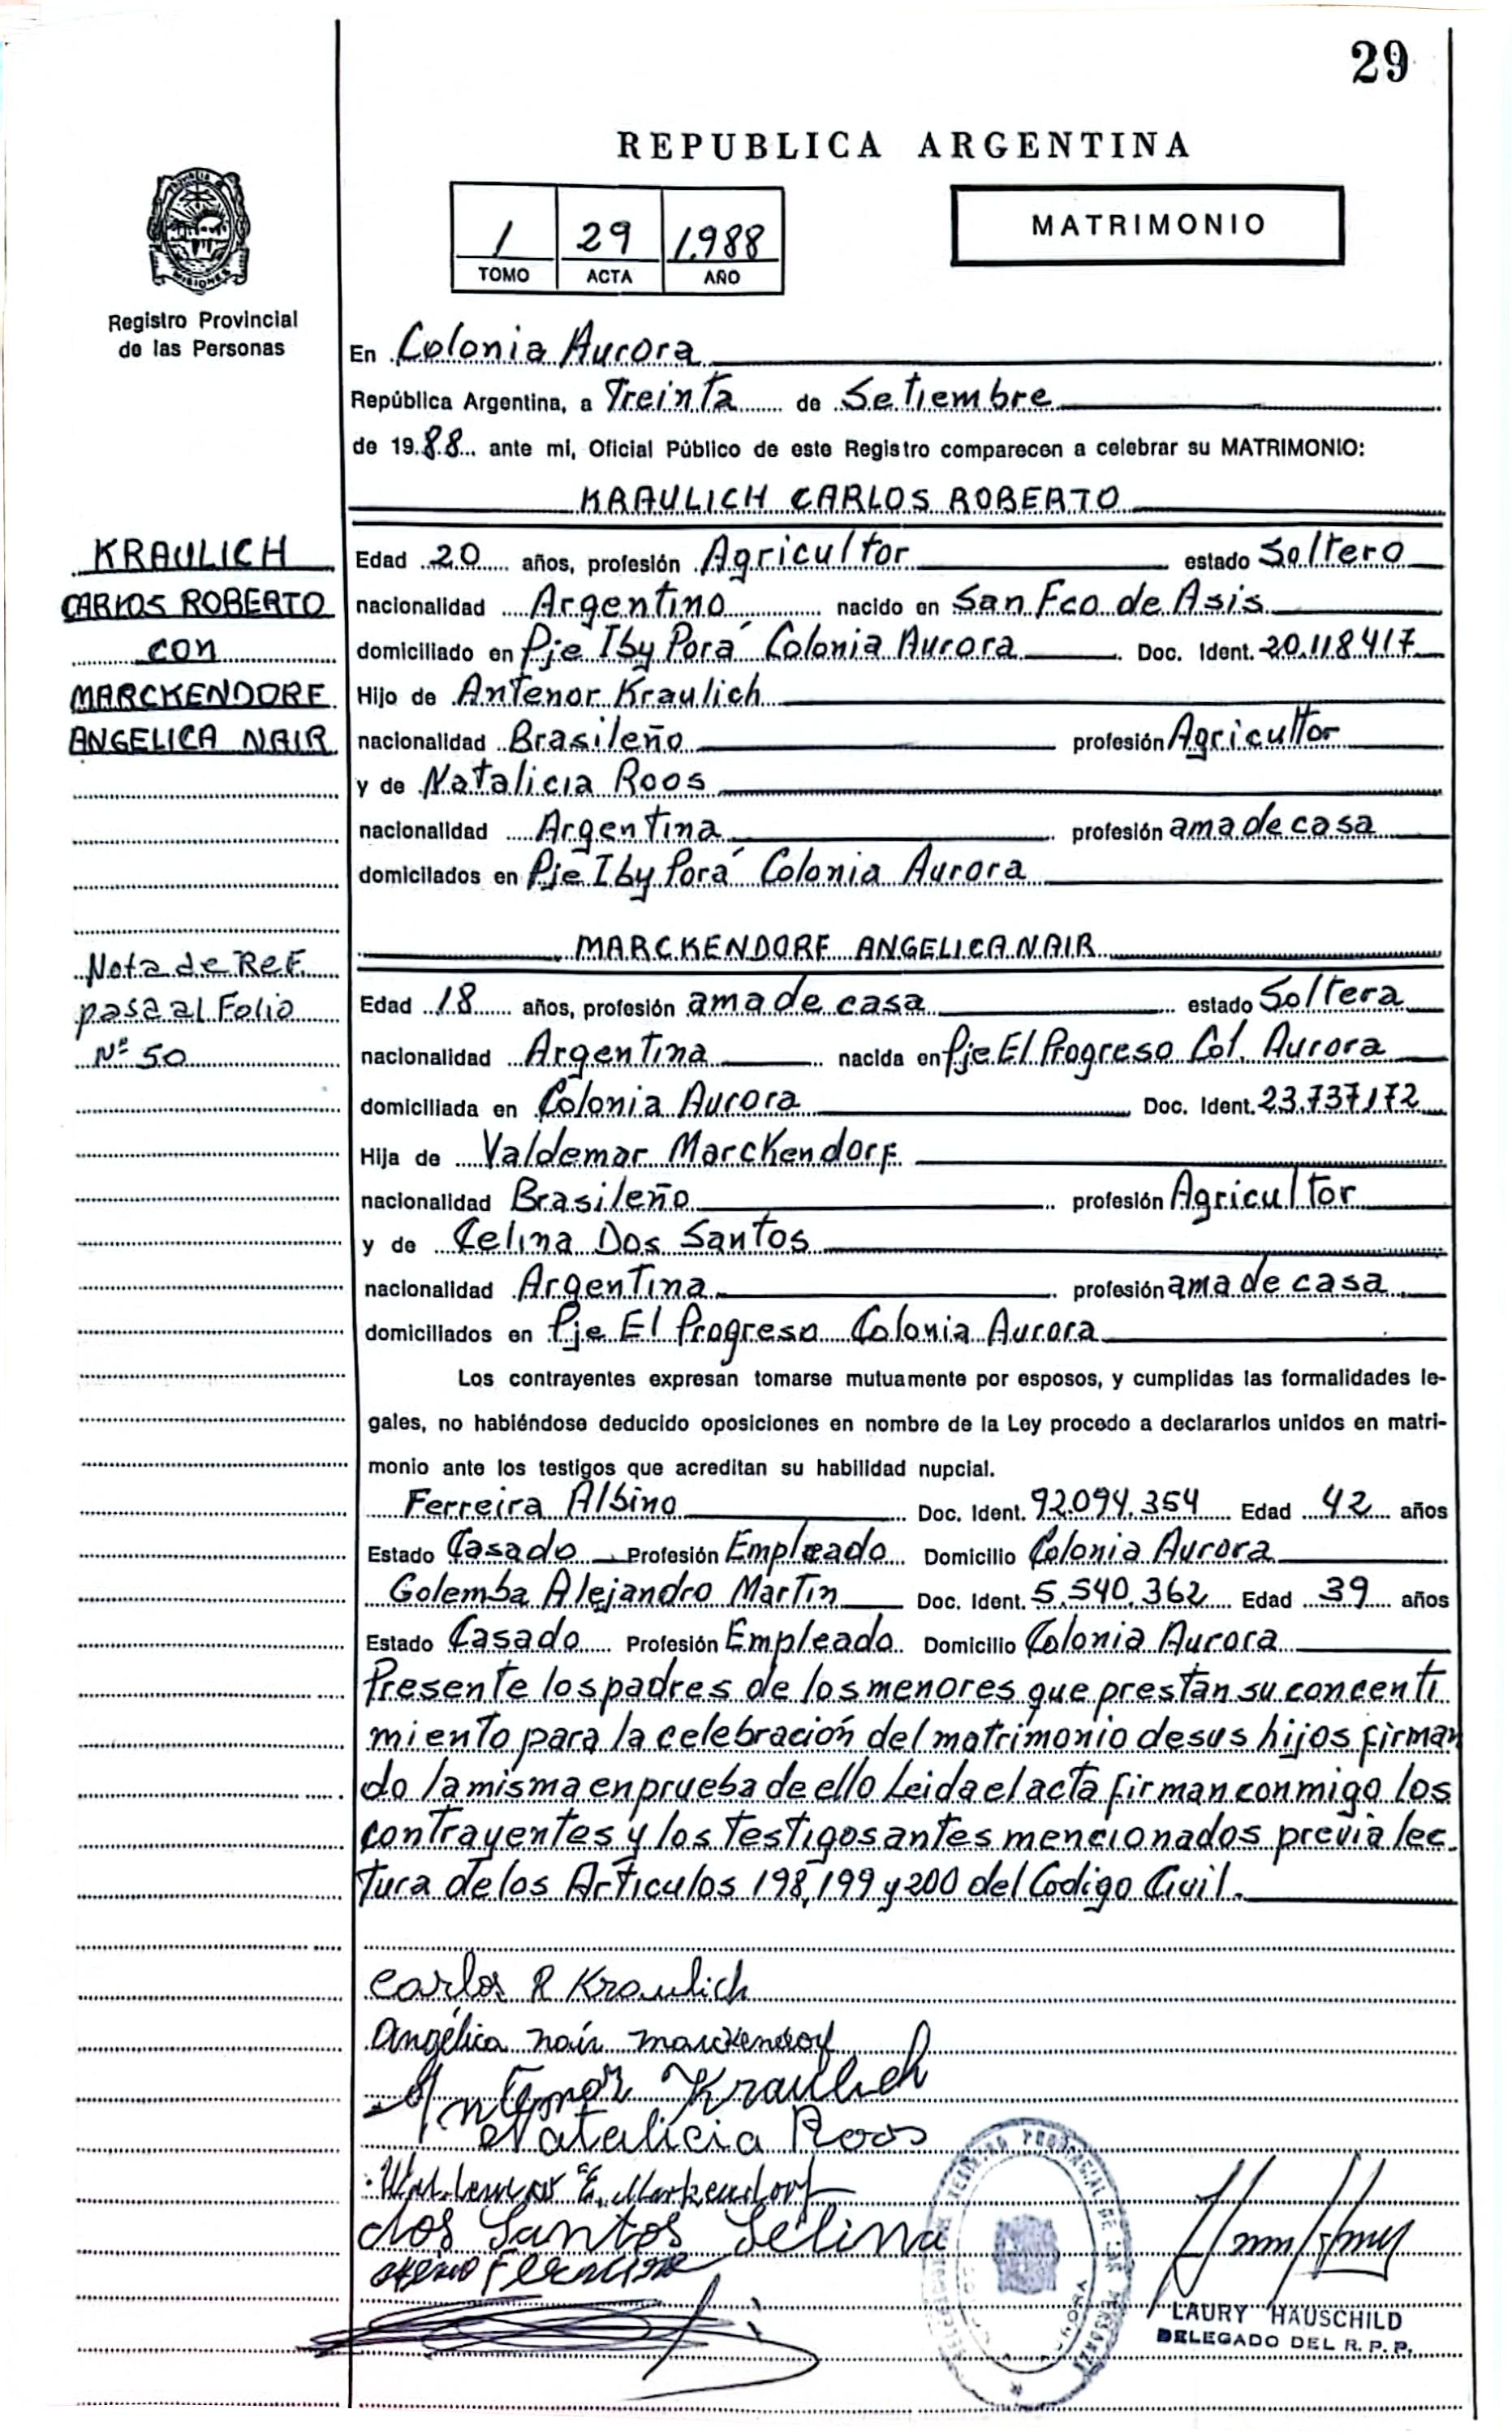 29
REPUBLICA ARGENTINA
1 29 1.988
TOMO ACTA AÑO
MATRIMONIO
MISIONES
Registro Provincial
de las Personas
En Colonia Aurora
República Argentina, a Treinta de Setiembre
de 19.88 ante mi, Oficial Público de este Registro comparecen a celebrar su MATRIMONIO:
KRAULICH CARLOS ROBERTO
KRAULICH
CARLOS ROBERTO
con
MARCKENDORF
ANGELICA NAIR
Nota de Ref.
pasa al Folio
Nº 50
Edad 20 años, profesión Agricultor estado Soltero
nacionalidad Argentino nacido en San Fco de Asis
domiciliado en Pje Iby Porá Colonia Aurora Doc. Ident. 20.118417
Hijo de Antenor Kraulich
nacionalidad Brasileño profesión Agricultor
y de Natalicia Roos
nacionalidad Argentina profesión ama de casa
domicilados en Pje Iby Porá Colonia Aurora
MARCKENDORF ANGELICA NAIR
Edad 18 años, profesión ama de casa estado Soltera
nacionalidad Argentina nacida en Pje El Progreso Col. Aurora
domiciliada en Colonia Aurora Doc. Ident. 23.737172
Hija de Valdemar Marckendorf
nacionalidad Brasileño profesión Agricultor
y de Celina Dos Santos
nacionalidad Argentina profesión ama de casa
domiciliados en Pje El Progreso Colonia Aurora
Los contrayentes expresan tomarse mutuamente por esposos, y cumplidas las formalidades le-
gales, no habiéndose deducido oposiciones en nombre de la Ley procedo a declararlos unidos en matri-
monio ante los testigos que acreditan su habilidad nupcial.
Ferreira Albino Doc. Ident. 92.094.354 Edad 42 años
Estado Casado Profesión Empleado Domicilio Colonia Aurora
Golemba Alejandro Martin Doc. Ident. 5.540.362 Edad 39 años
Estado Casado Profesión Empleado Domicilio Colonia Aurora
Presente los padres de los menores que prestan su concenti
miento para la celebración del matrimonio de sus hijos firman
do la misma en prueba de ello Leida el acta firman conmigo los
contrayentes y los testigos antes mencionados previa lec-
tura de los Articulos 198, 199 y 200 del Codigo Civil.
Carlos R Kraulich
Angélica nair marckendorf
Antenor Kraulich
Natalicia Roos
Waldemar E. Markendorf
dos Santos Selina
LAURY HAUSCHILD
DELEGADO DEL R. P. P.